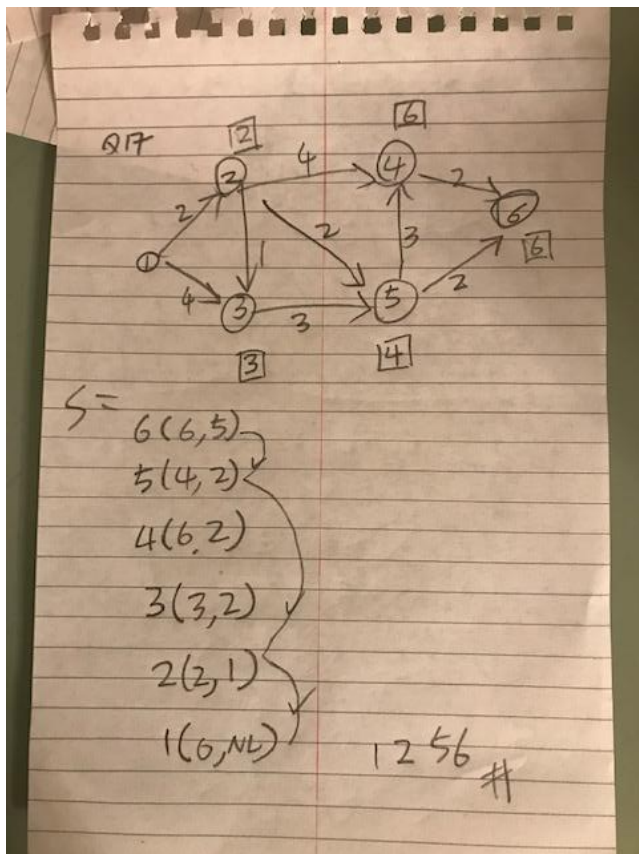 Q17
2
6
2
4
4
2
6
2
2
1
3
6
1
4
3
3
5
2
3
4
S =
6(6,5)
5(4,2)
4(6,2)
3(3,2)
2(2,1)
1(0,NL)
1 2 5 6 #